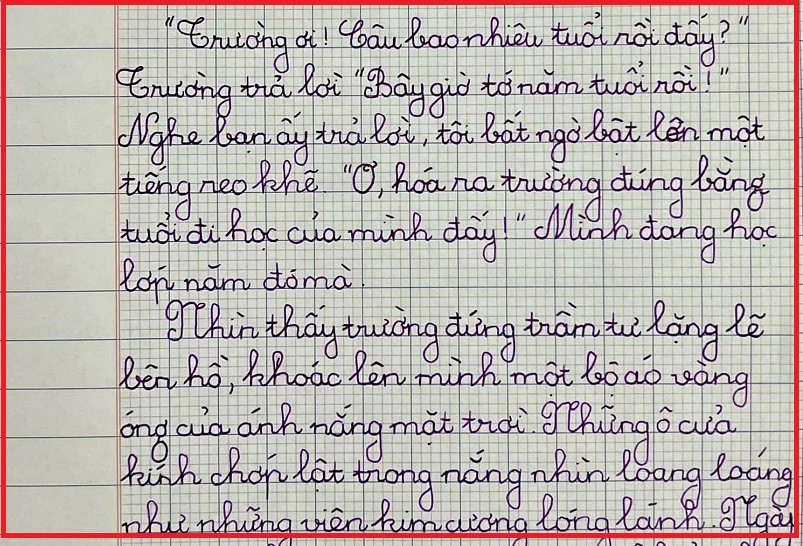 "Trường ơi! Cậu bao nhiêu tuổi rồi đấy?"
Trường trả lời "Bây giờ tớ năm tuổi rồi!"
Nghe bạn ấy trả lời, tôi bất ngờ bật lên một
tiếng reo khẽ. "Ơ, hóa ra trường đúng bằng
tuổi đi học của mình đấy!" Mình đang học
lớp năm đó mà.
Nhìn thấy trường đứng trầm tư lặng lẽ
bên hồ, khoác lên mình một bộ áo vàng
óng của ánh nắng mặt trời. Những ô cửa
kính chớp lật trong nắng nhìn loang loáng
như những viên kim cương lóng lánh. Ngày